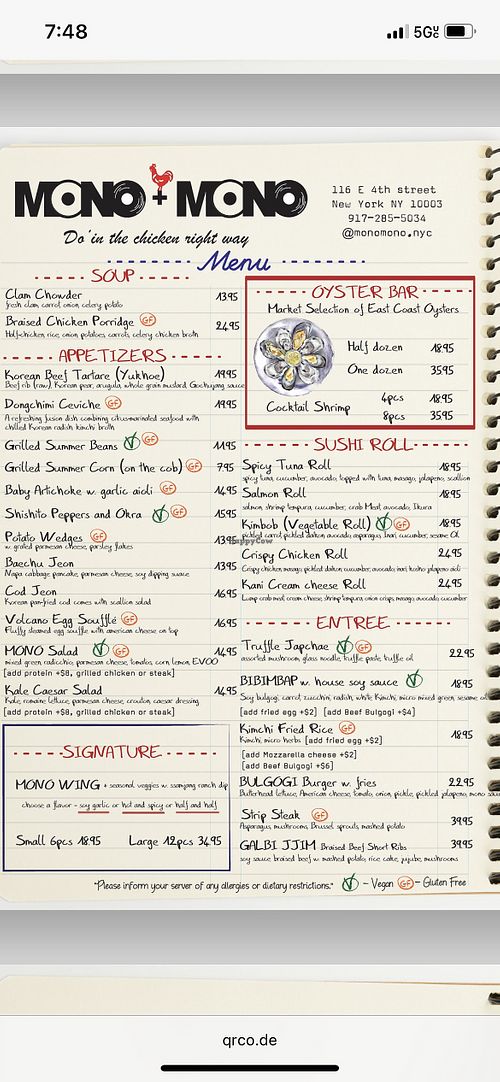 7:48
5G
MONO + MONO
Do'in the chicken right way
116 E 4th street
New York NY 10003
917-285-5034
@monomono.nyc
Menu
SOUP
Clam Chowder 13.95
fresh clam, carrot, onion, celery, potato
Braised Chicken Porridge GF 24.95
Half-chicken, rice, onion, potatoes, carrots, celery, chicken broth
APPETIZERS
Korean Beef Tartare (Yukhoe) 19.95
Beef rib (raw), Korean pear, arugula, whole grain mustard, Gochujang sauce
Dongchimi Ceviche GF 19.95
A refreshing fusion dish combining citrus-marinated seafood with
chilled Korean radish kimchi broth
Grilled Summer Beans V GF 11.95
Grilled Summer Corn (on the cob) GF 7.95
Baby Artichoke w. garlic aioli GF 14.95
Shishito Peppers and Okra V GF 15.95
Potato Wedges GF 13.95
w. grated parmesan cheese, parsley flakes
HappyCow
Baechu Jeon 13.95
Napa cabbage pancake, parmesan cheese, soy dipping sauce
Cod Jeon 16.95
Korean pan-fried cod comes with scallion salad
Volcano Egg Soufflé GF 16.95
Fluffy steamed egg souffle with american cheese on top
MONO Salad V GF 14.95
mixed green, radicchio, parmesan cheese, tomatoes, corn, lemon, EVOO
[add protein +$8, grilled chicken or steak]
Kale Caesar Salad 14.95
Kale, romaine lettuce, parmesan cheese, crouton, caesar dressing
[add protein +$8, grilled chicken or steak]
SIGNATURE
MONO WING + seasonal veggies w. ssamjang ranch dip
choose a flavor - soy garlic or hot and spicy or half and half
Small 6pcs 18.95 Large 12pcs 34.95
OYSTER BAR
Market Selection of East Coast Oysters
Half dozen 18.95
One dozen 35.95
Cocktail Shrimp 4pcs 18.95
8pcs 35.95
SUSHI ROLL
Spicy Tuna Roll 18.95
spicy tuna, cucumber, avocado, topped with tuna, masago, jalapeno, scallion
Salmon Roll 18.95
salmon, shrimp tempura, cucumber, crab Meat, avocado, Ikura
Kimbob (Vegetable Roll) V GF 18.95
pickled carrot, pickled daikon, avocado, asparagus, Inari, cucumber, sesame Oil
Crispy Chicken Roll 24.95
Crispy chicken, masago, pickled daikon, cucumber, avocado, Inari, jalapeno aioli
Kani Cream cheese Roll 24.95
Lump crab meat, cream cheese, shrimp tempura, onion crisps, masago, avocado, cucumber
ENTREE
Truffle Japchae V GF 22.95
assorted mushroom, glass noodle, truffle paste, truffle oil
BIBIMBAP w. house soy sauce V 18.95
Soy bulgogi, carrot, zucchini, radish, white Kimchi, micro mixed green, sesame oil
[add fried egg +$2] [add Beef Bulgogi +$4]
Kimchi Fried Rice GF 18.95
Kimchi, micro herbs [add fried egg +$2]
[add Mozzarella cheese +$2]
[add Beef Bulgogi +$6]
BULGOGI Burger w. fries 22.95
Butterhead lettuce, American cheese, tomato, onion, pickle, pickled jalapeno, mono
Strip Steak GF 39.95
Asparagus, mushrooms, Brussel sprouts, mashed potato
GALBI JJIM Braised Beef Short Ribs 39.95
soy sauce braised beef w. mashed potato, rice cake, jujube, mushrooms
"Please inform your server of any allergies or dietary restrictions." V - Vegan GF - Gluten Free
qrco.de